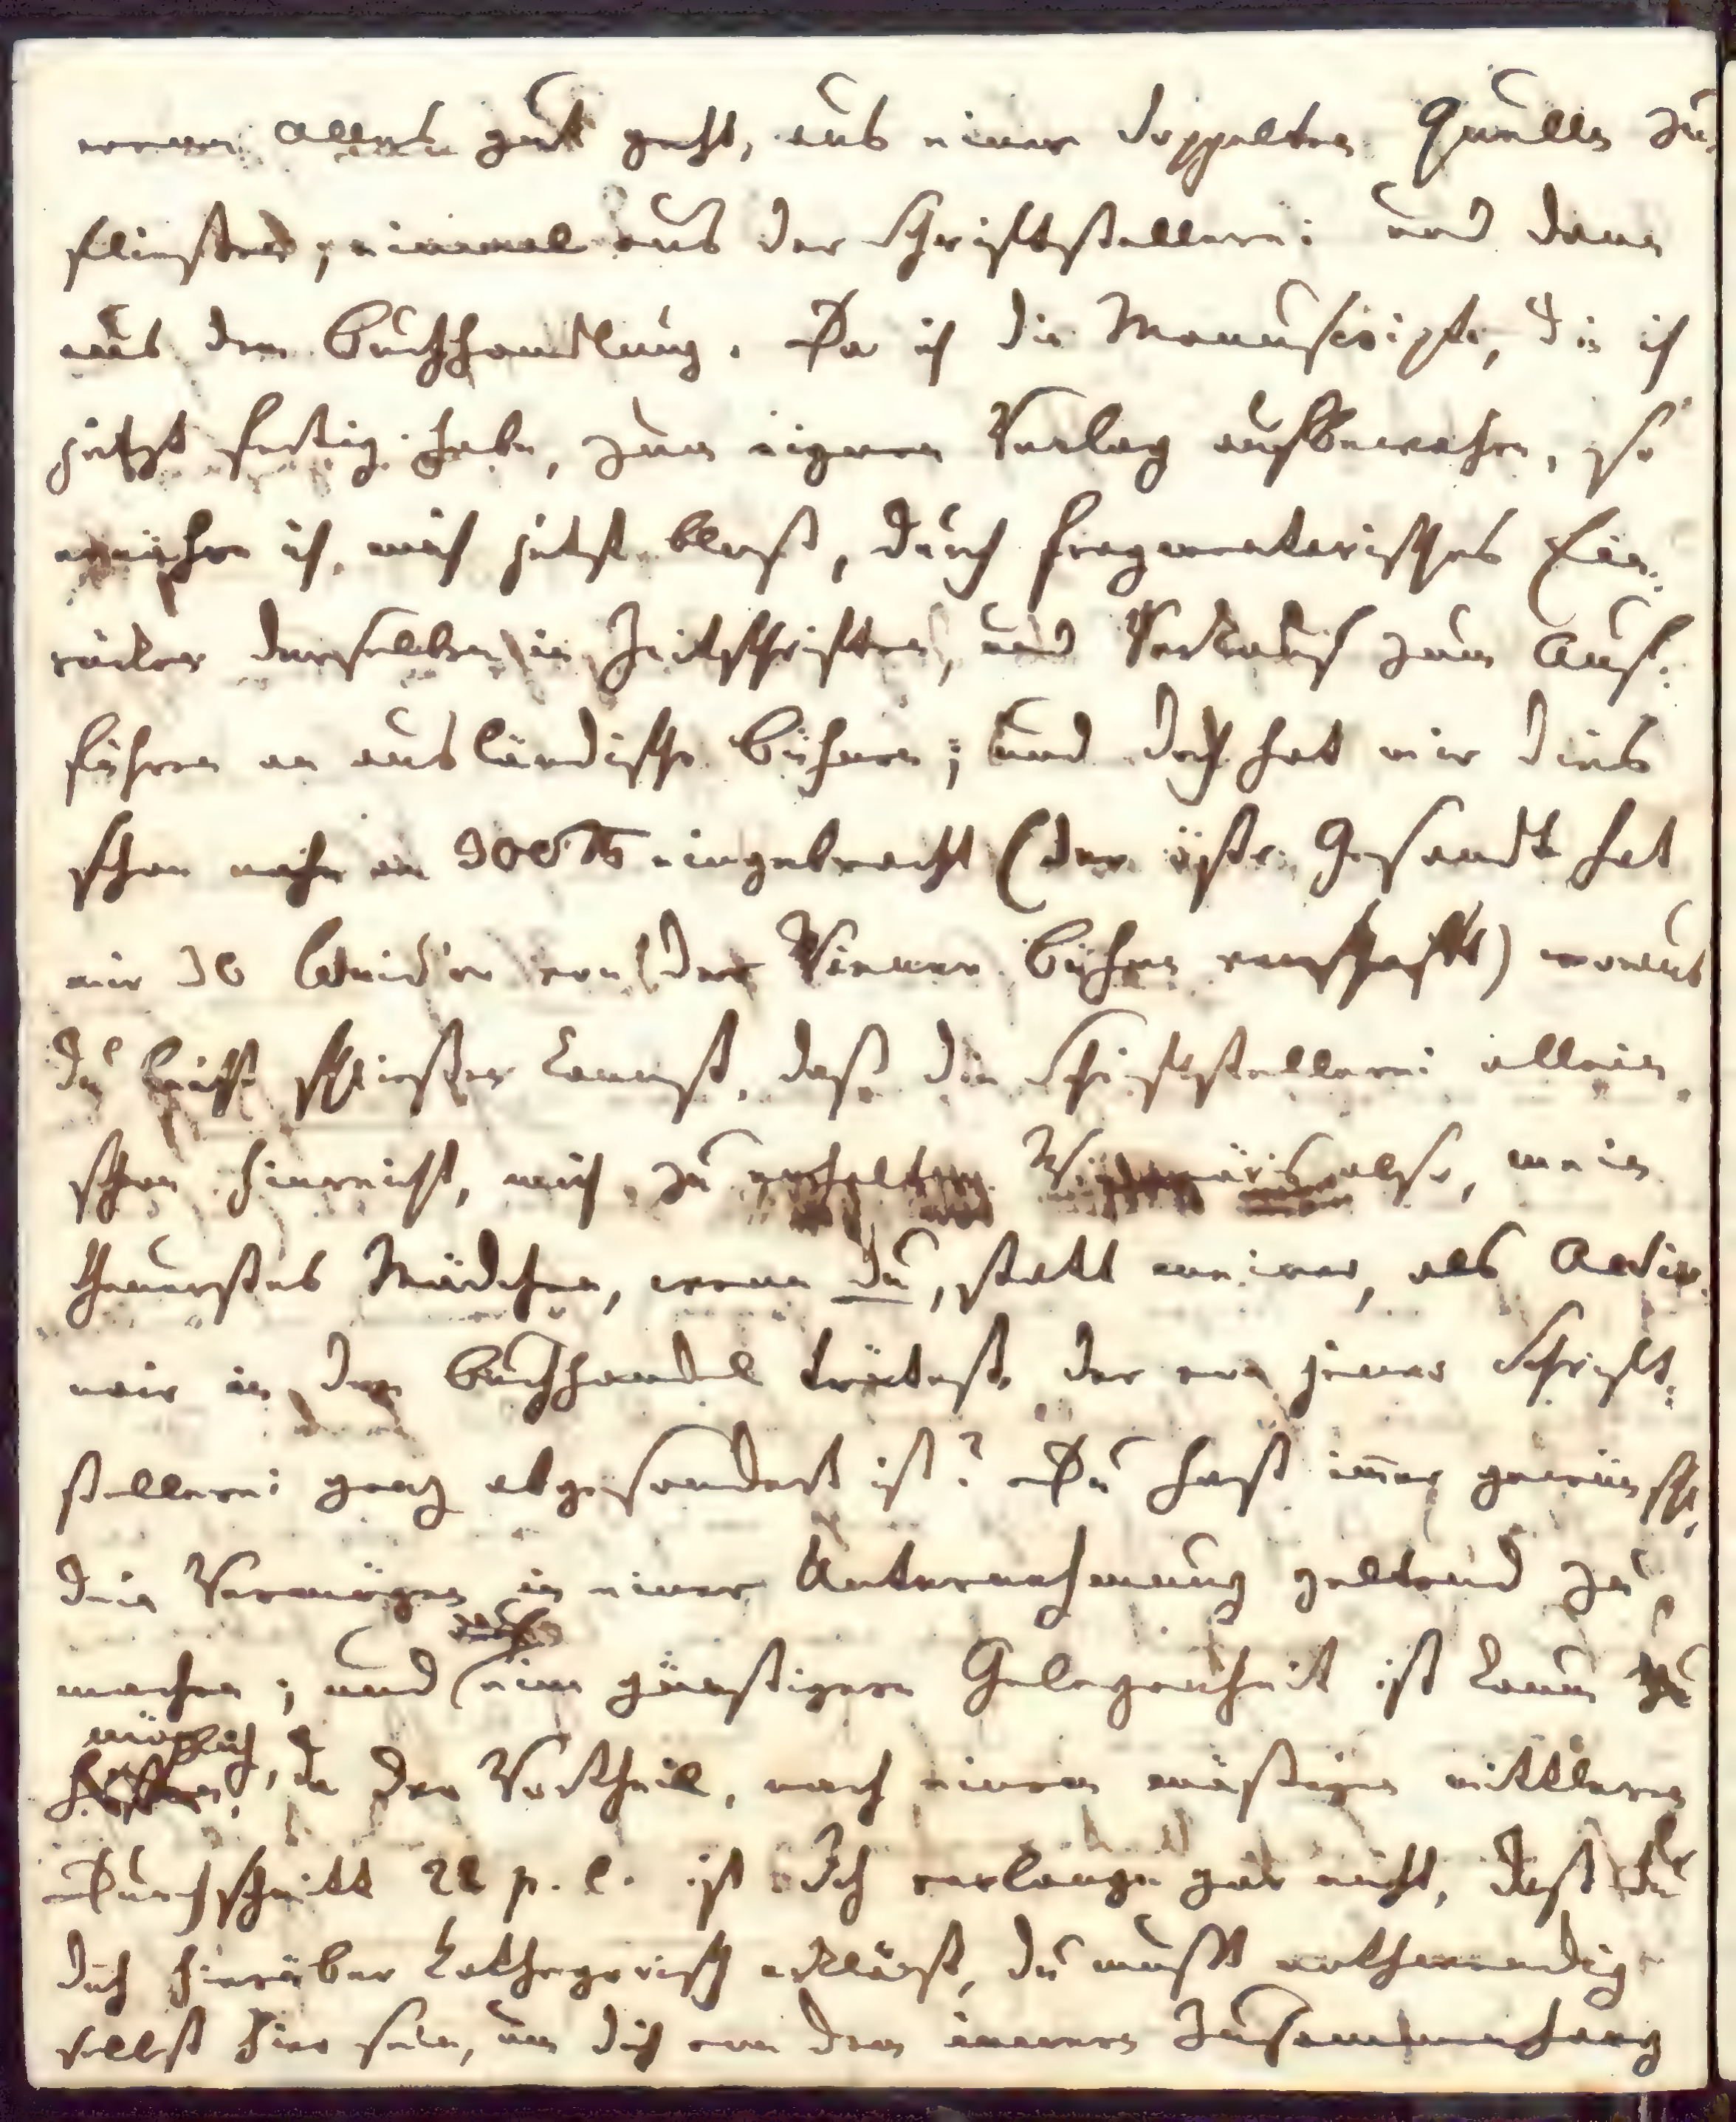 wenn alles gut geht, aus einer doppelten Quelle zu-
fließen, einmal aus der Schriftstellerei und dann
aus dem Buchhandlung. Da ich die Manuscripte, die ich
jetzt fertig habe, zum eignen Verlag aufbewahre, so
ernähre ich mich jetzt bloß, durch fragmentarisches Ein-
rücken derselben in Zeitschriften, und Verkauf zum Auf-
führen an ausländische Bühnen; und doch hat mir dies
schon nahe an 300 rth eingebracht (der östr. Gesandte hat
mir 30 Louisd'or von der Wiener Bühne verschafft) woraus
du leicht schließen kannst, daß die Schriftstellerei allein
schon hinreicht, mich zu erhalten. Wie wär's also, mein
theuerstes Mädchen, wenn du, statt meiner, als Actio-
nair in den Buchhandel trätest, der von jener Schrift-
stellerei ganz abgesondert ist? Du hast immer gewünscht,
dein Vermögen in einer Unternehmung geltend zu
machen; und eine günstigere Gelegenheit ist kaum
möglich, da der Vortheil, nach einem mäßigen mittleren
Durchschnitt 22 p. C. ist. Ich verlange gar nicht, daß du
dich hierüber kathegorisch erklärst, du mußt nothwendig
selbst hier sein, um dich von dem inneren Zusammenhang